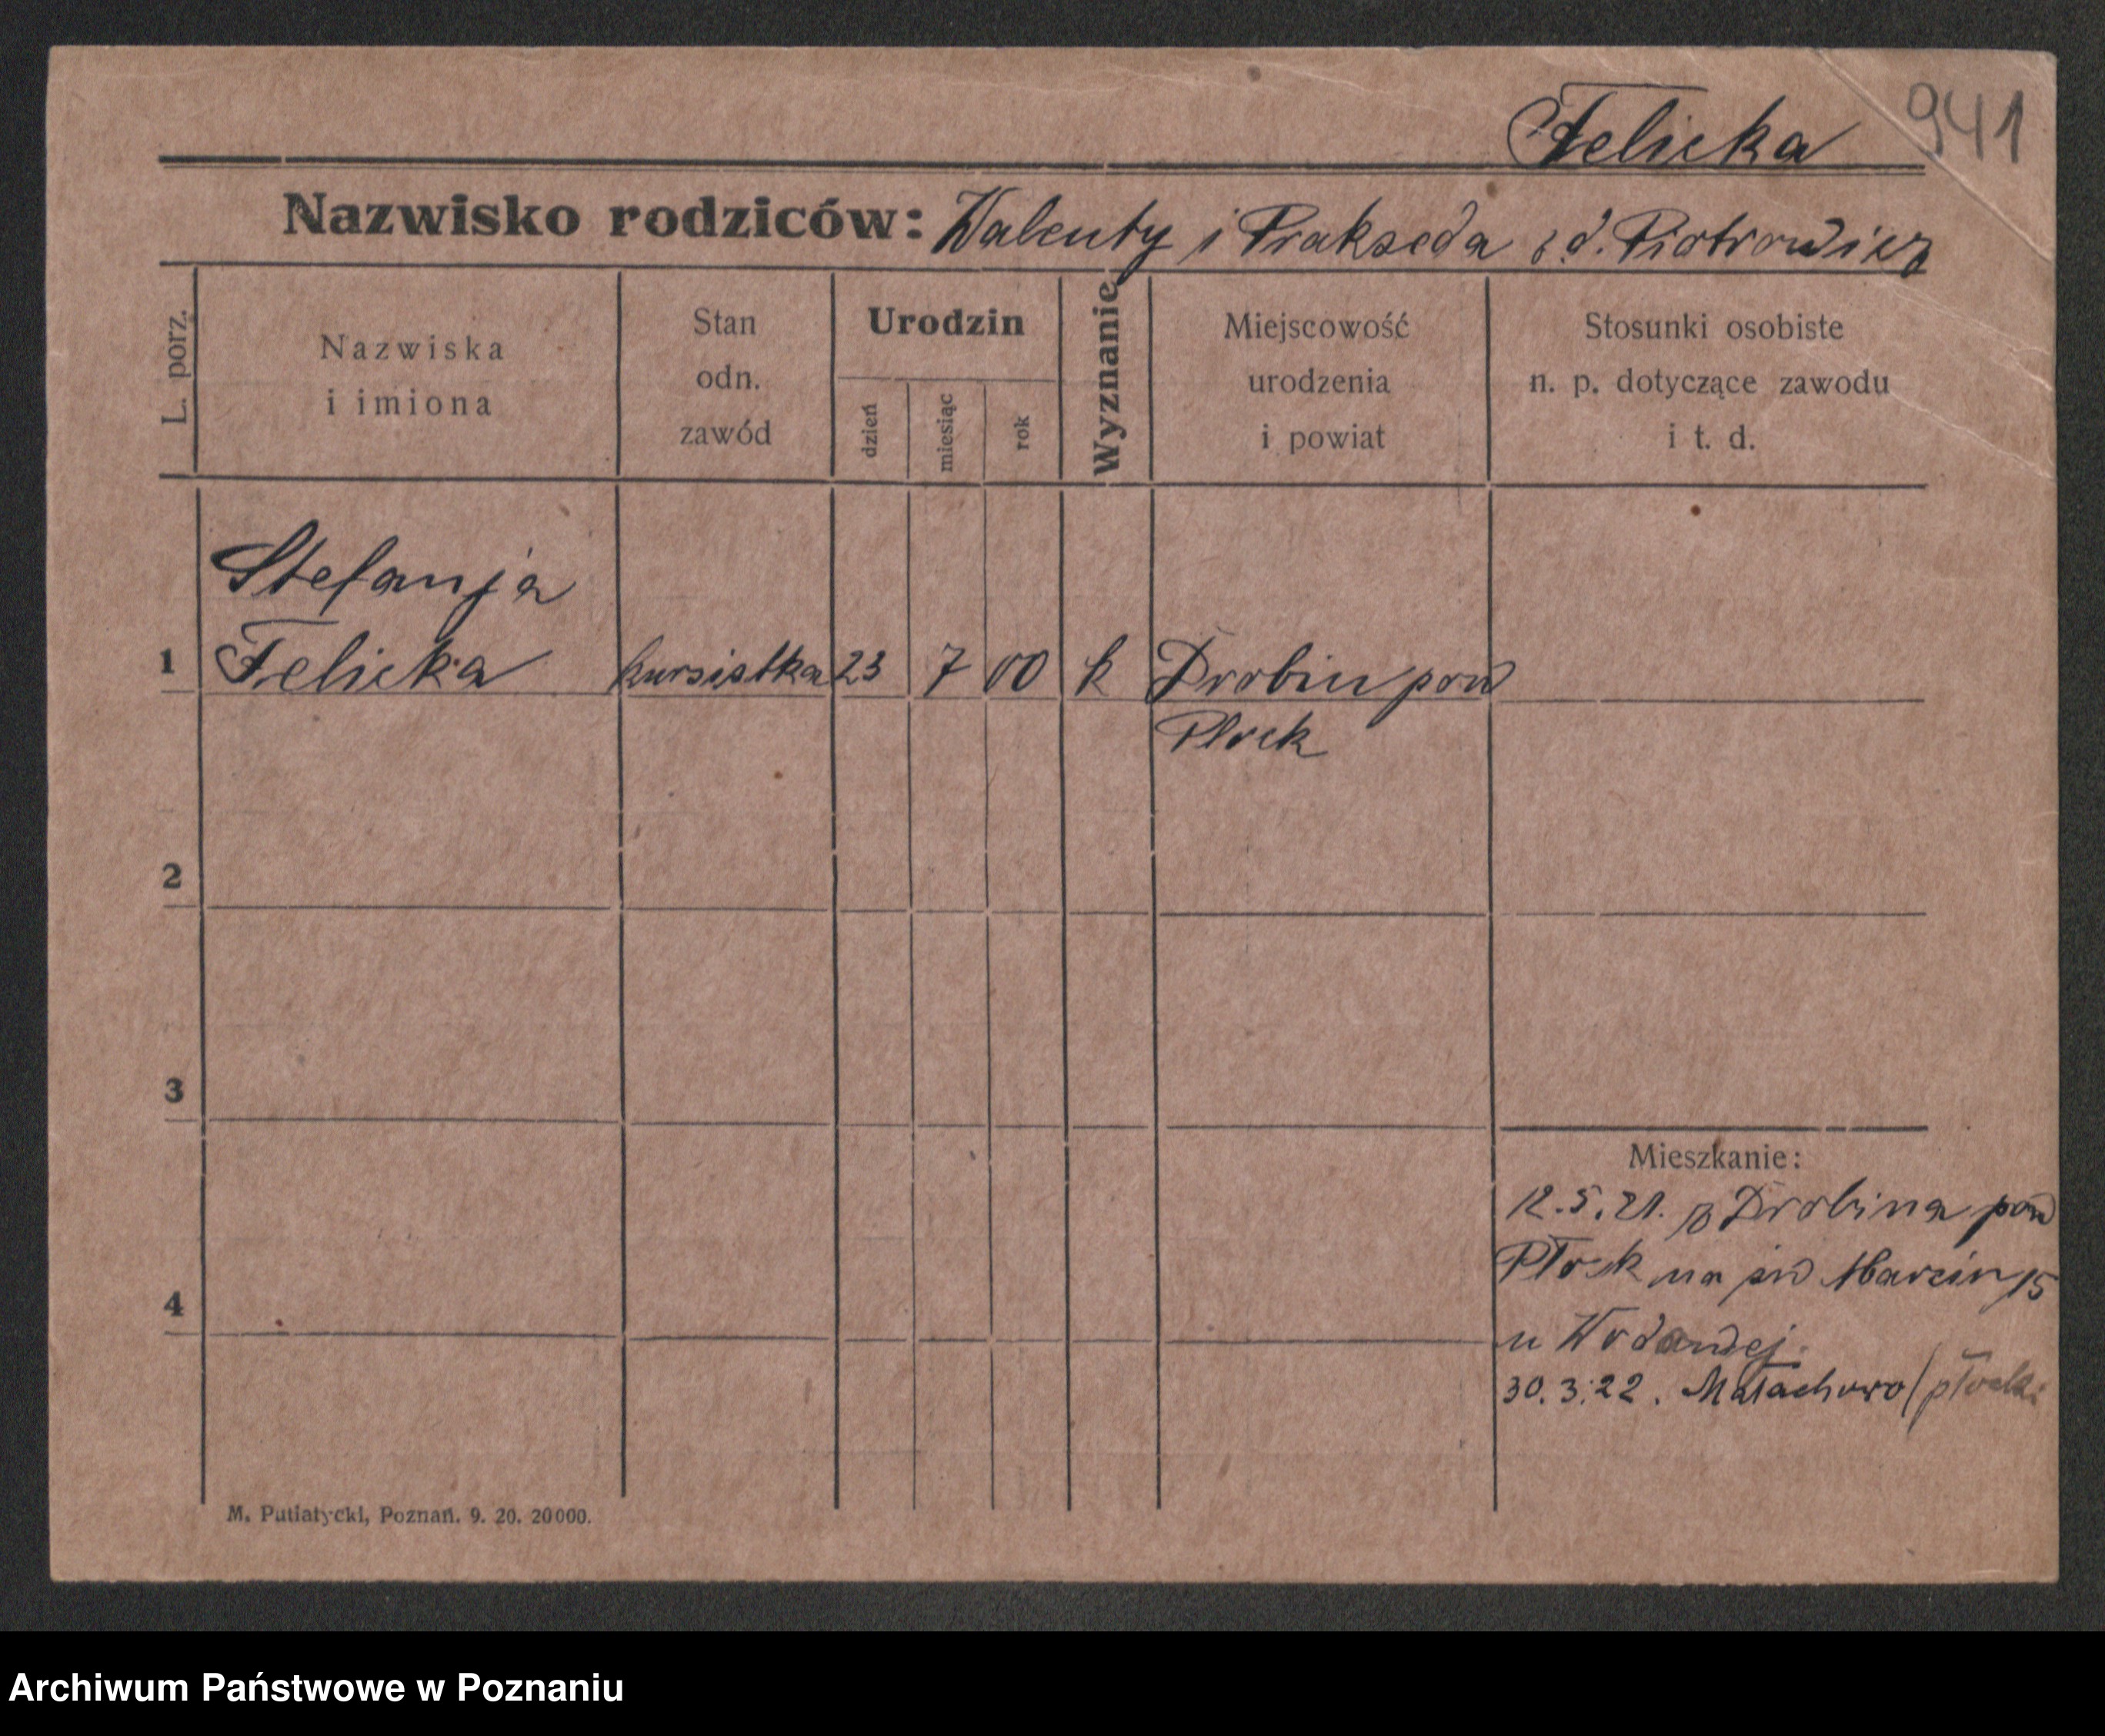 941
Felicka
Nazwisko rodziców: Walenty i Prakseda z d. Piotrowicz
L. porz.
Nazwiska
i imiona
Stan
odn.
zawód
Urodzin
dzień
miesiąc
rok
Wyznanie
Miejscowość
urodzenia
i powiat
Stosunki osobiste
n. p. dotyczące zawodu
i t. d.
Stefanja
1 Felicka kursistka 23 7 00 k Drobin pow
Płock
2
3
4
Mieszkanie:
12.5.21. z Drobina pow
Płock na św Marcin 15
u
30.3.22. Małachowo / płocki
M. Putiatycki, Poznań. 9. 20. 20000.
Archiwum Państwowe w Poznaniu